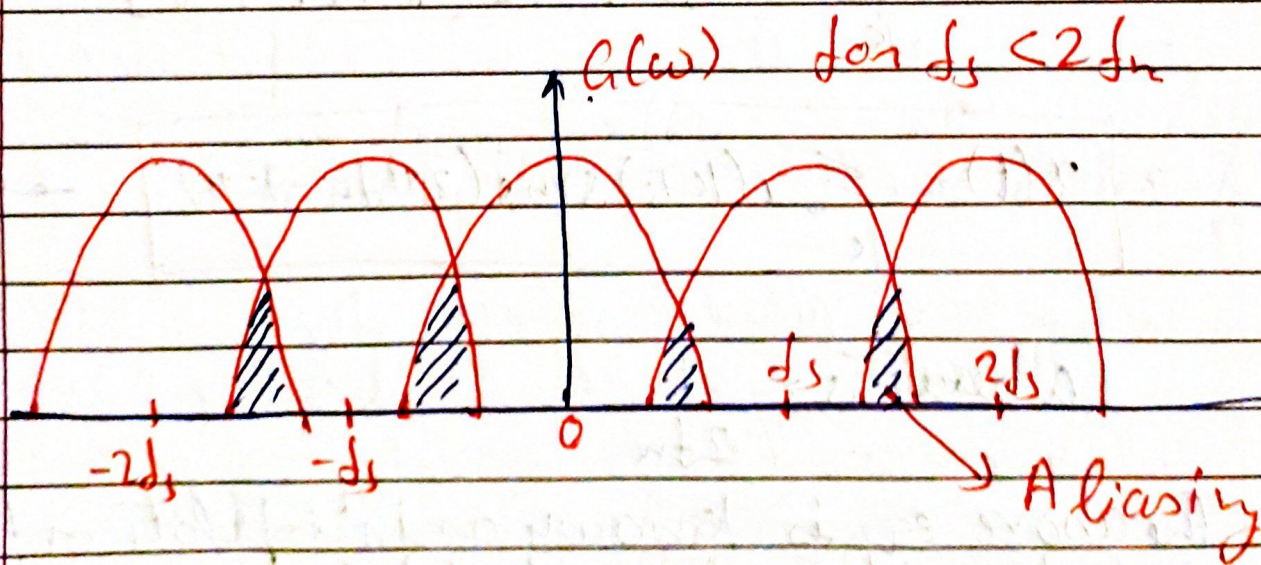 G(ω) for fs < 2fm
fs 2fs
-2fs -fs 0
Aliasing